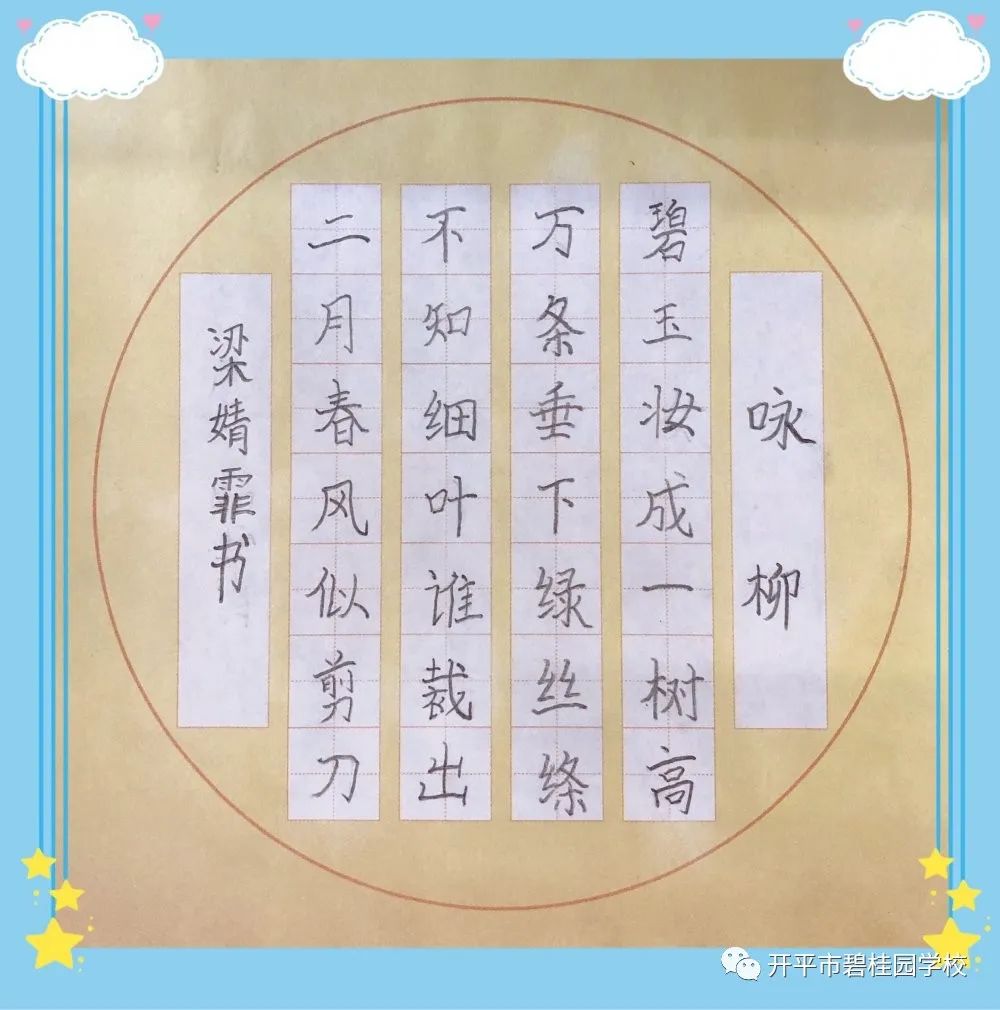 咏柳
碧玉妆成一树高
万条垂下绿丝绦
不知细叶谁裁出
二月春风似剪刀
梁婧霏书
开平市碧桂园学校